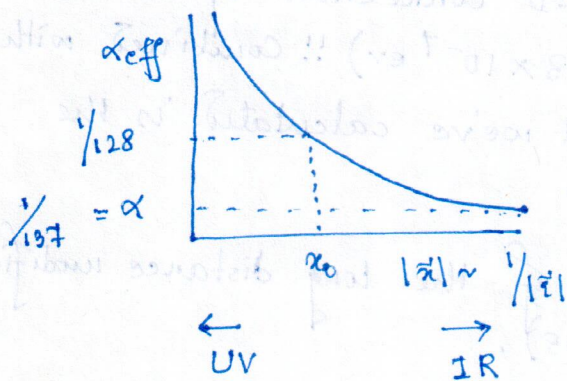 α_eff
1/128
1/137 = α
x₀ |x⃗| ~ 1/|q⃗|
← →
UV IR